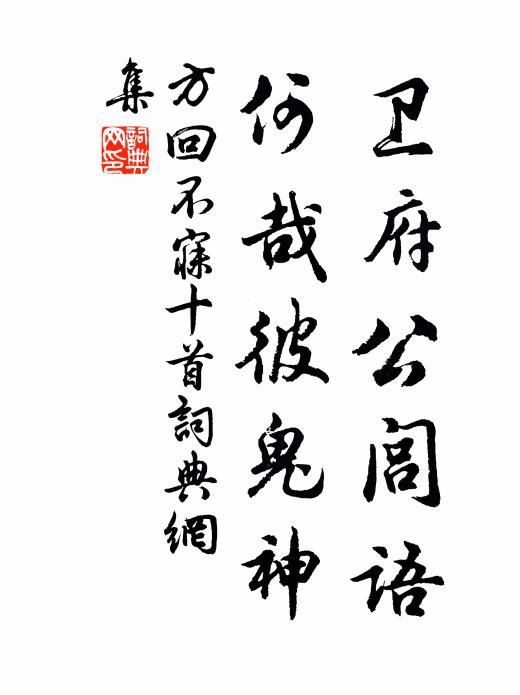 卫府公闾语
何哉彼鬼神
方回不寐十首詞典網
集
詞典网印